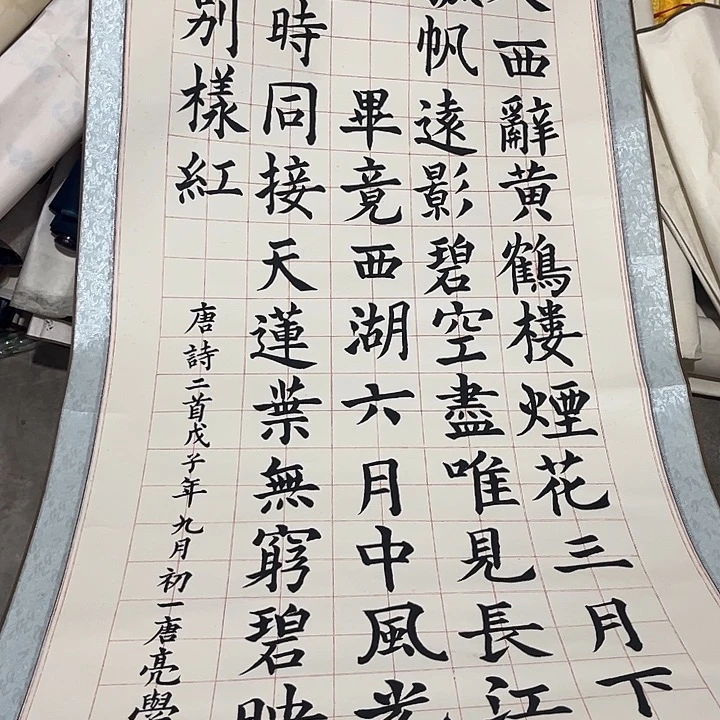 西辭黄鶴樓煙花三月下
帆遠影碧空盡唯見長江
畢竟西湖六月中風光
時同接天蓮葉無窮碧映
別樣紅
唐詩二首戊子年九月初一唐亮學